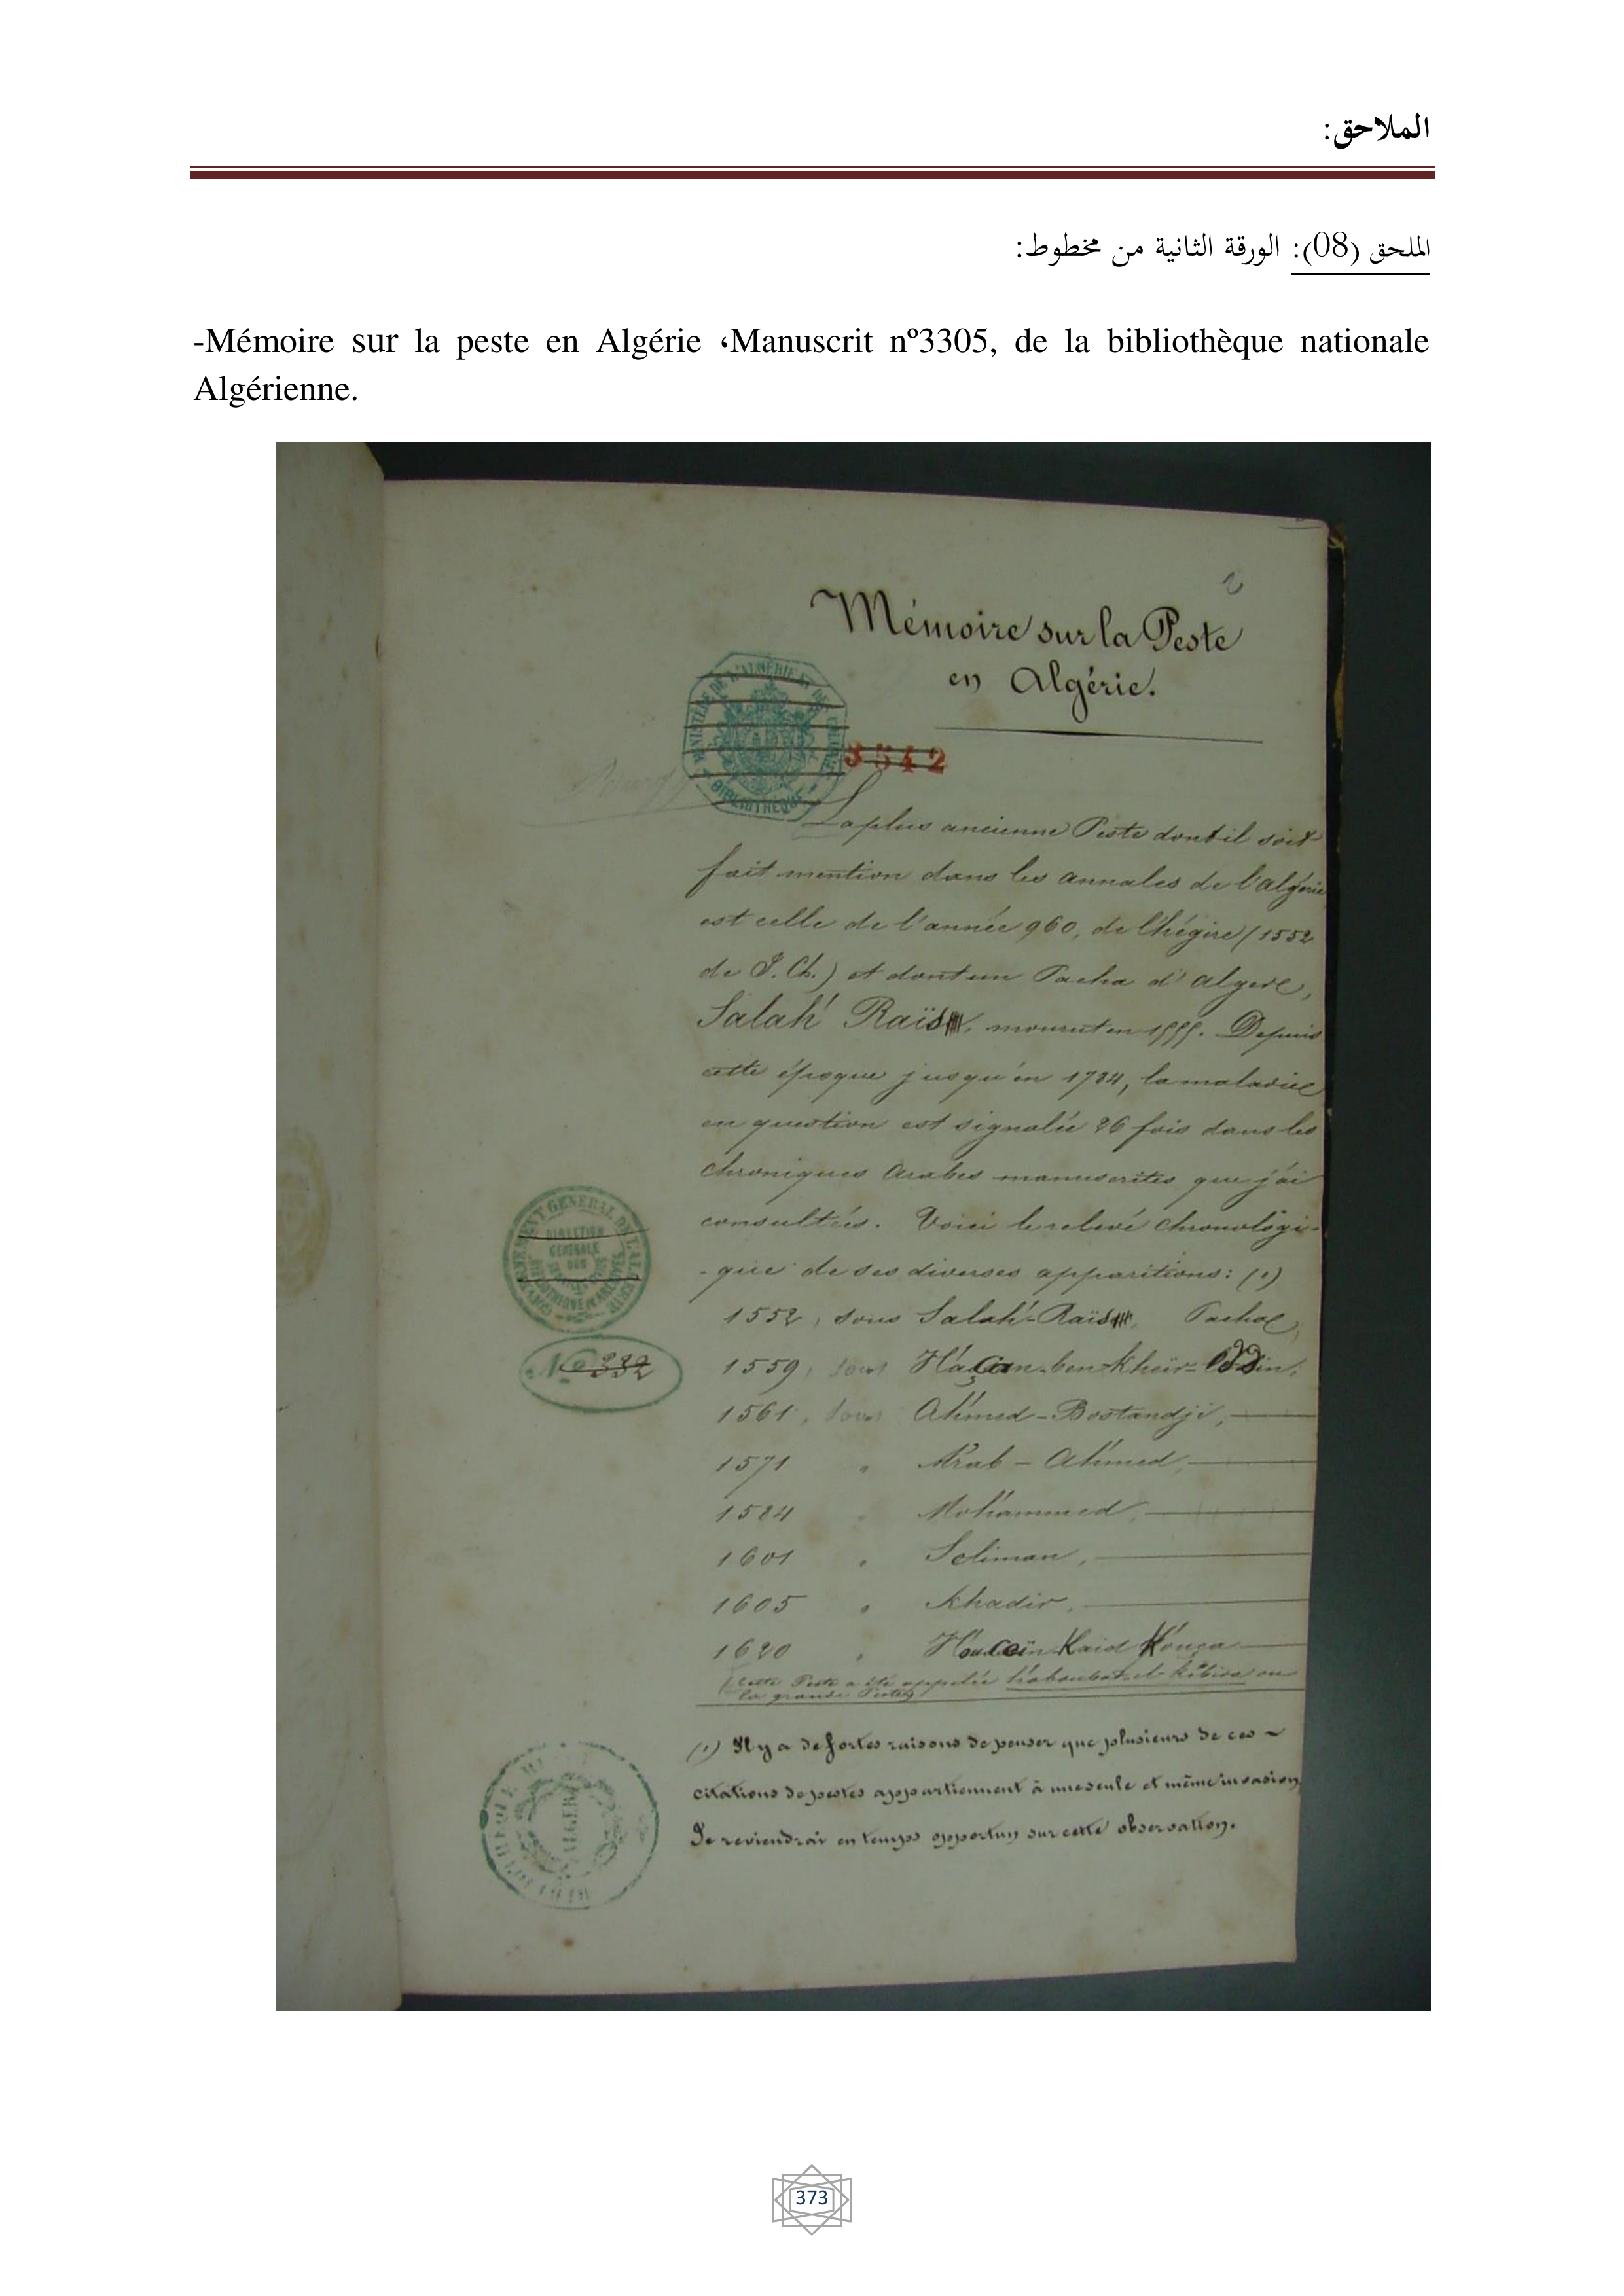 الملاحق:
الملحق (08): الورقة الثانية من مخطوط:
-Mémoire sur la peste en Algérie ،Manuscrit nº3305, de la bibliothèque nationale
Algérienne.
2
Mémoire sur la Peste
en Algérie.
MINISTÈRE DE L'ALGÉRIE ET DES COLONIES
BIBLIOTHÈQUE
3542
La plus ancienne Peste dont il soit
fait mention dans les annales de l'algérie
est celle de l'année 960, de l'hégire (1552
de J. Ch.) et dont un Pacha d'algere,
Salah' Raïs, mourut en 1555. Depuis
cette époque jusqu'en 1784, la maladie
en question est signalée 26 fois dans les
chroniques Arabes manuscrites que j'ai
consultées. Voici le relevé chronologi-
-que de ses diverses apparitions: (1)
1552, sous Salah'-Raïs, Pacha,
1559, sous H'açan-ben-Kheïr-eddin,
1561, sous Ah'med-Bostandji,
1571 " Arab-Ah'med,
1584 " Moh'ammed,
1601 " Soliman,
1605 " Khadir,
1620 " H'ouceïn Kaïd K'ouça
(Cette Peste a été appelée h'aboubat-el-kebira ou
la grande Peste)
GOUVERNEMENT GENERAL DE L'ALGERIE
DIRECTION
GENERALE
DES
BIBLIOTHEQUE et ARCHIVES
No 332
(1) Il y a de fortes raisons de penser que plusieurs de ces
citations de pestes appartiennent à une seule et même invasion,
Je reviendrai en temps opportun sur cette observation.
BIBLIOTHEQUE
ALGER
373